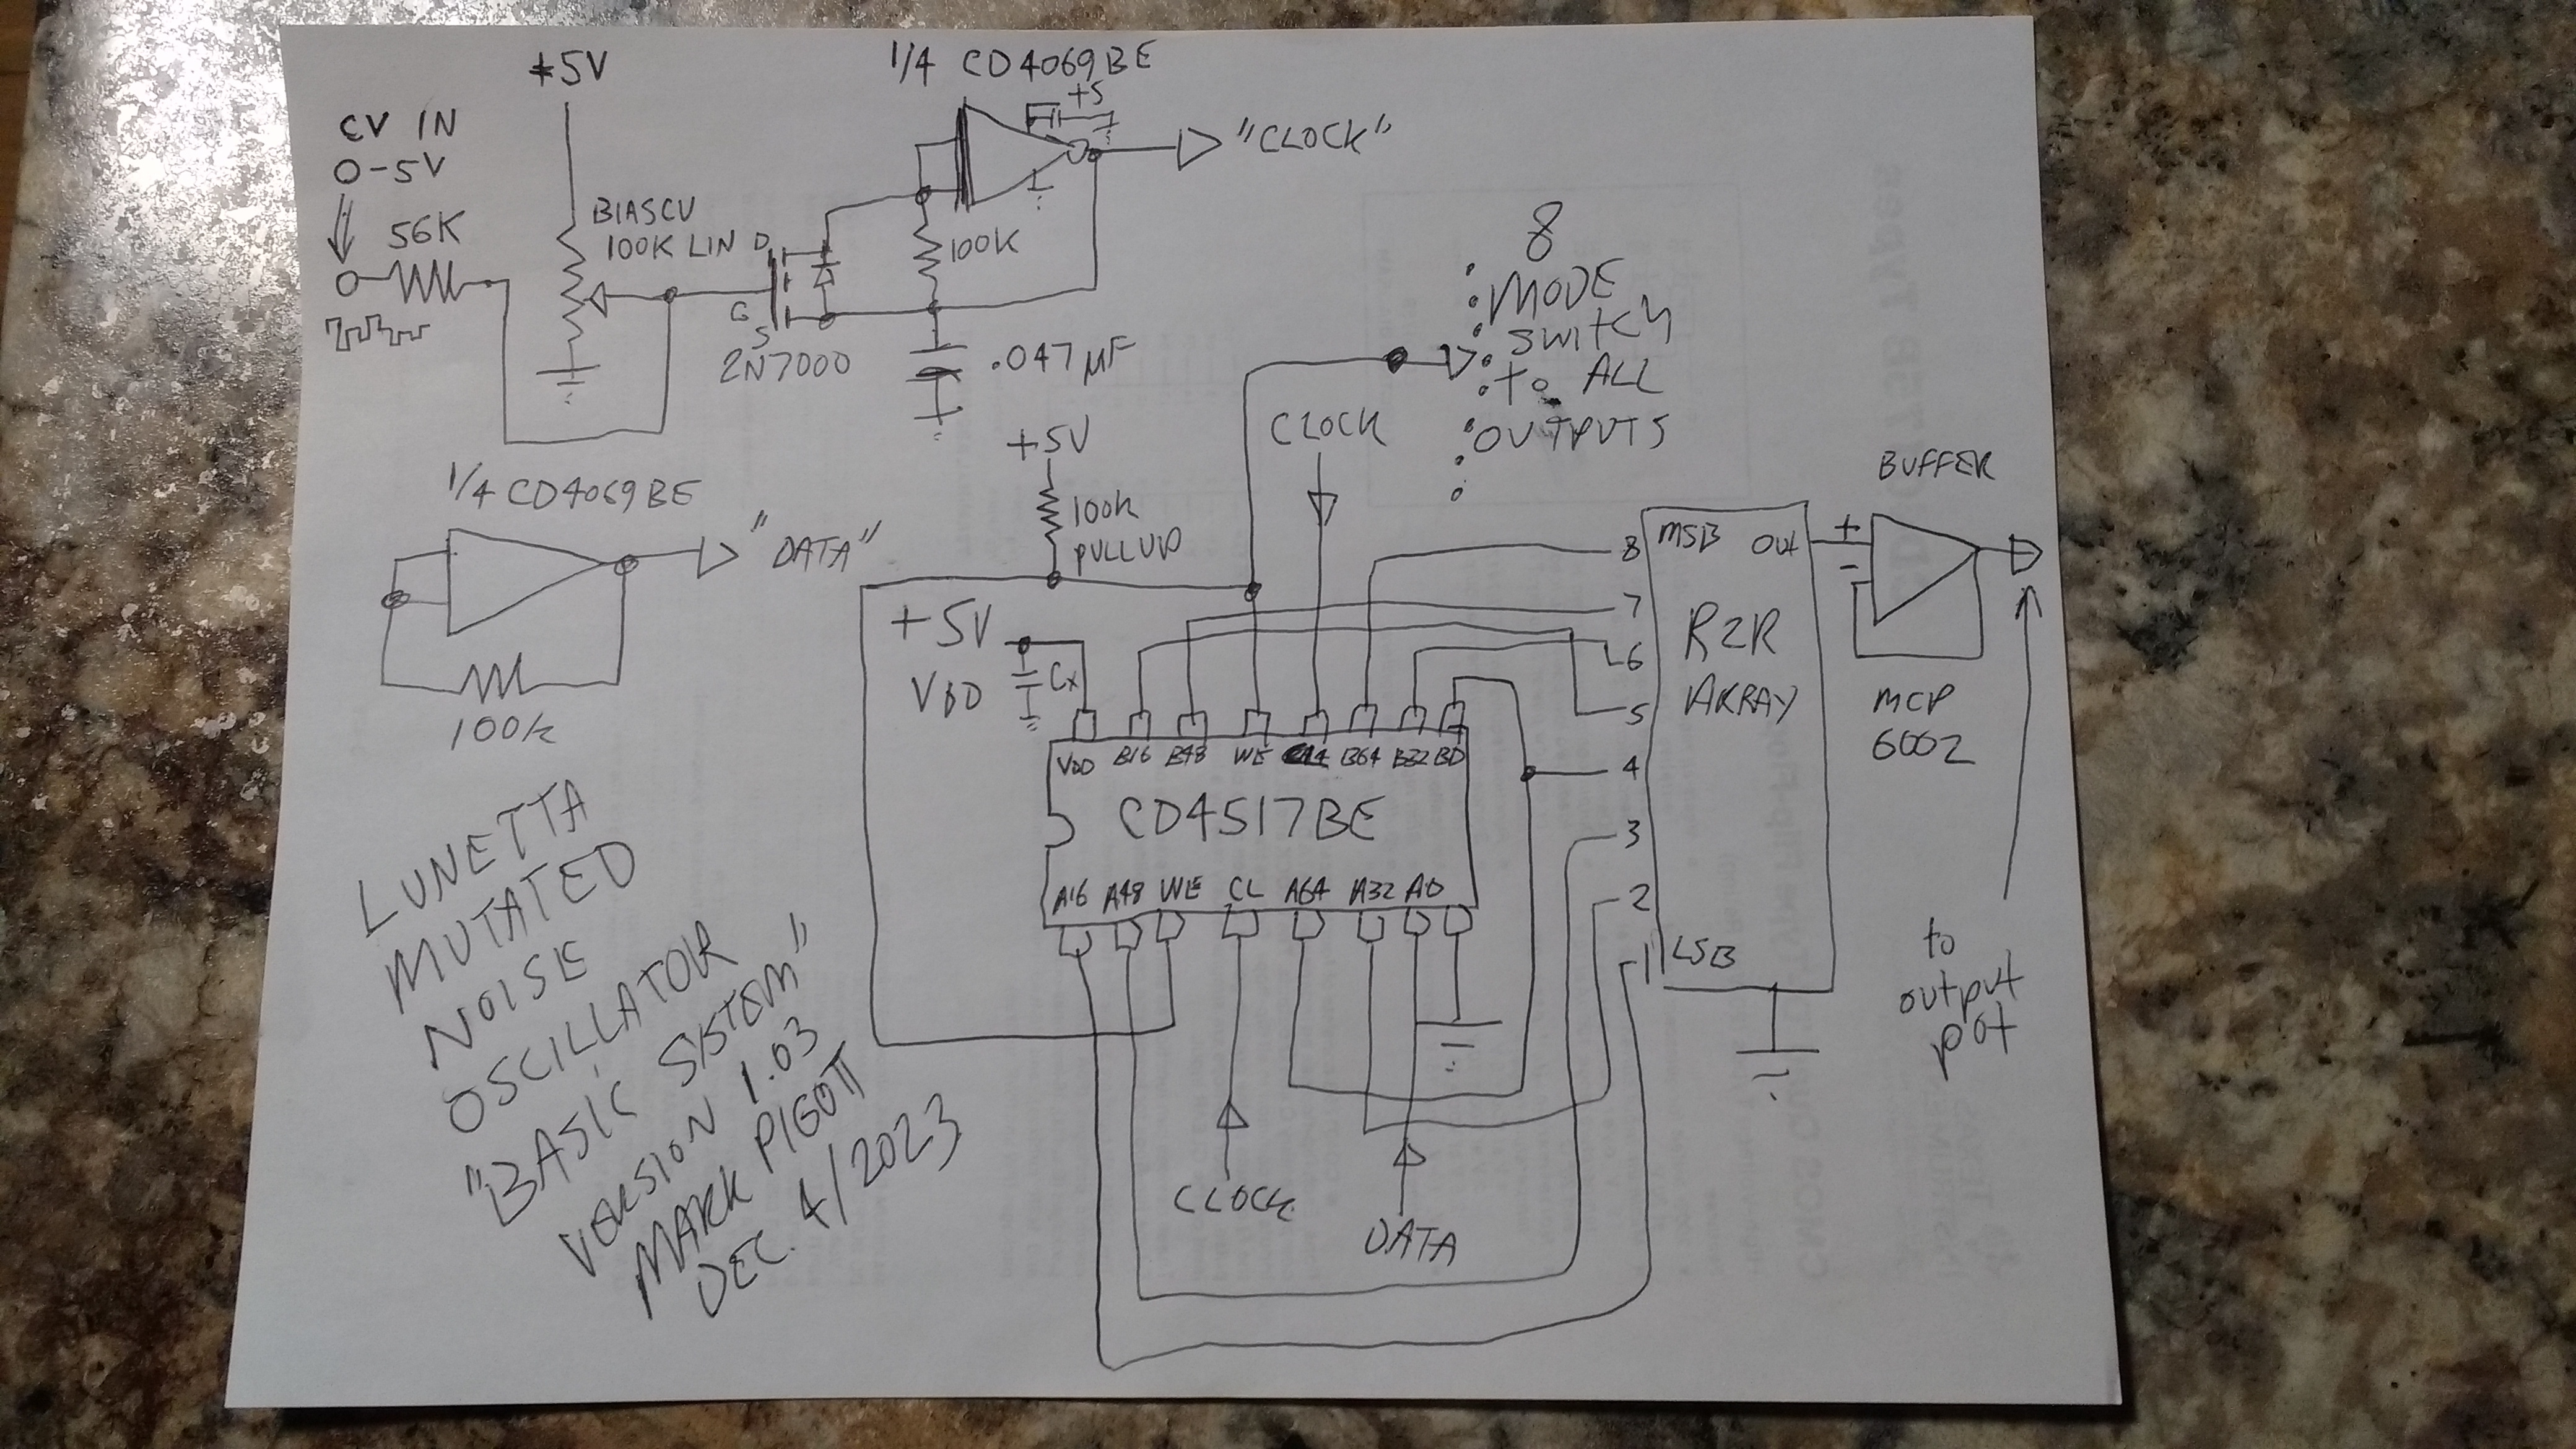 +5V
1/4 CD4069BE
+5
CV IN
0-5V
56K
BIASCV
100K LIN
D
G
S
2N7000
100K
.047µF
"CLOCK"
8
MODE
SWITCH
to ALL
OUTPUTS
1/4 CD4069BE
"DATA"
100k
+5V
100k
PULLUP
CLOCK
+5V
VDD
Cx
VDD B16 B48 WE B64 B32 BD
CD4517BE
A16 A48 WE CL A64 A32 AD
CLOCK
DATA
8 MSB OUT
7
6
5
4
3
2
1 LSB
R2R
ARRAY
BUFFER
+
-
MCP
6002
to
output
pot
LUNETTA
MUTATED
NOISE
OSCILLATOR
"BASIC SYSTEM"
VERSION 1.03
MARK PIGOTT
DEC. 4/2023